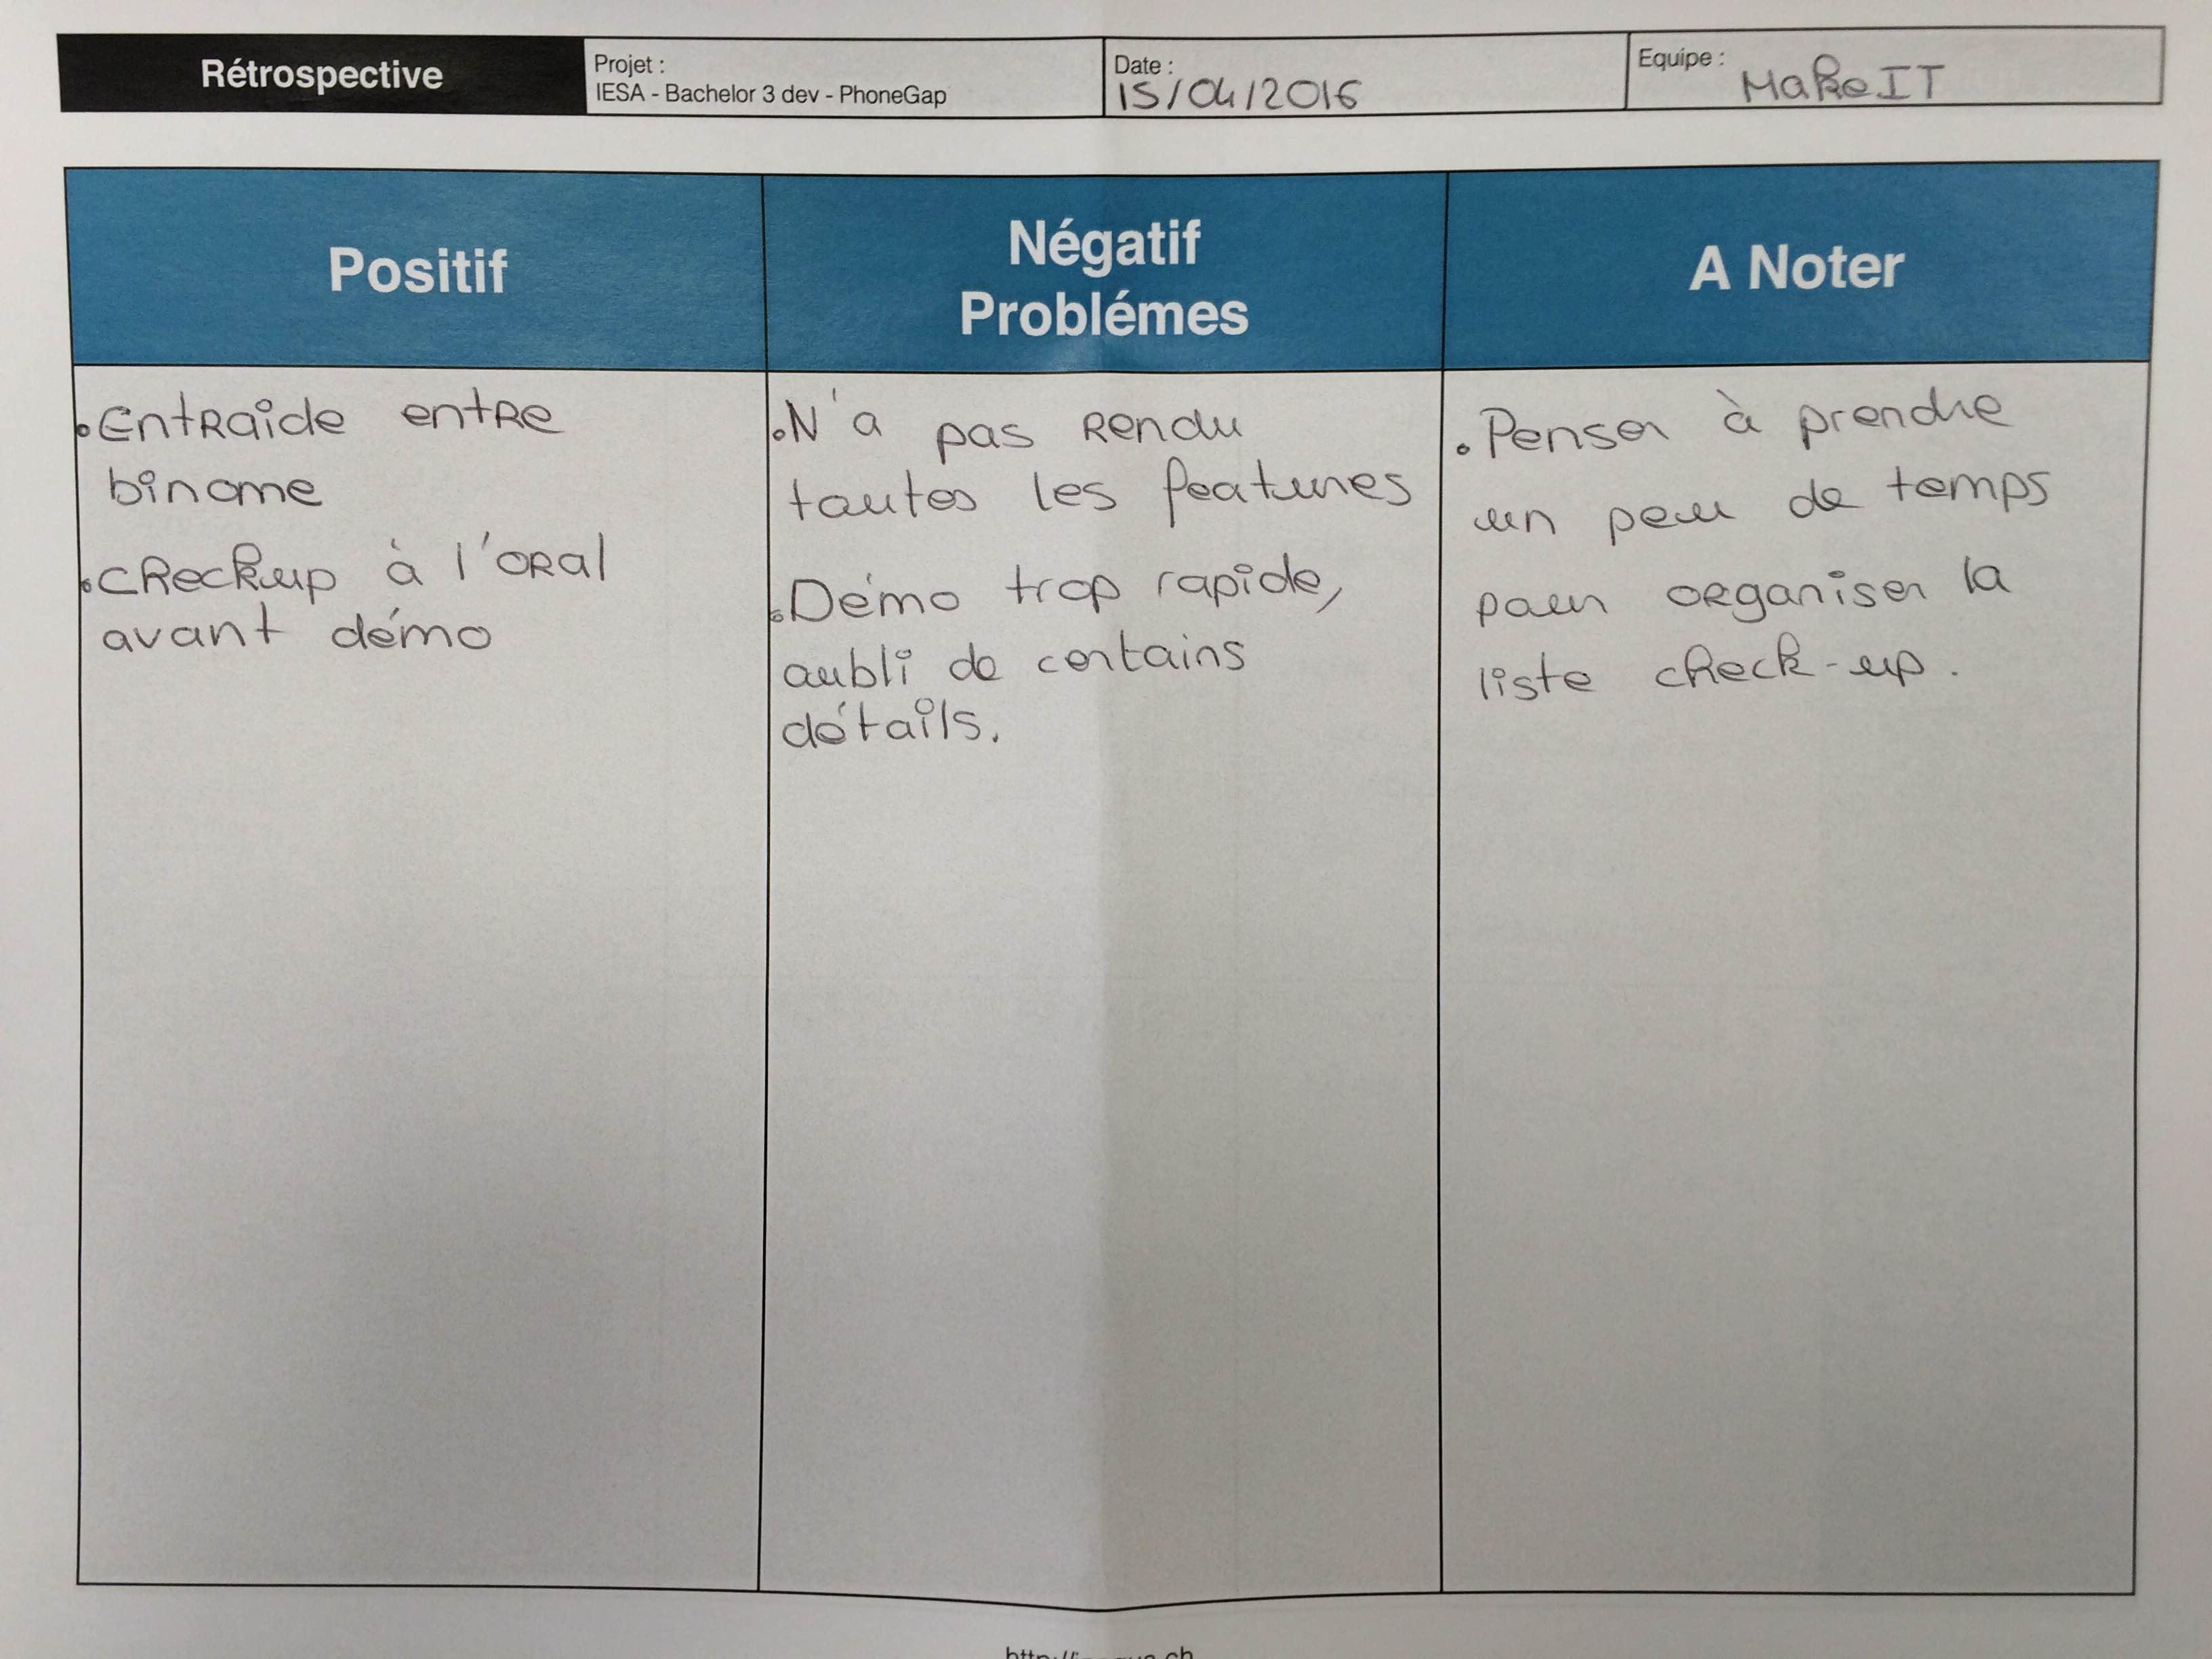 Rétrospective
Projet :
IESA - Bachelor 3 dev - PhoneGap
Date :
15/04/2016
Equipe :
MakeIT
Positif
Négatif
Problémes
A Noter
• Entraide entre
binome
• checkup à l'oral
avant démo
• N'a pas rendu
toutes les features
• Démo trop rapide,
oubli de certains
détails.
• Penser à prendre
un peu de temps
pour organiser la
liste check-up.